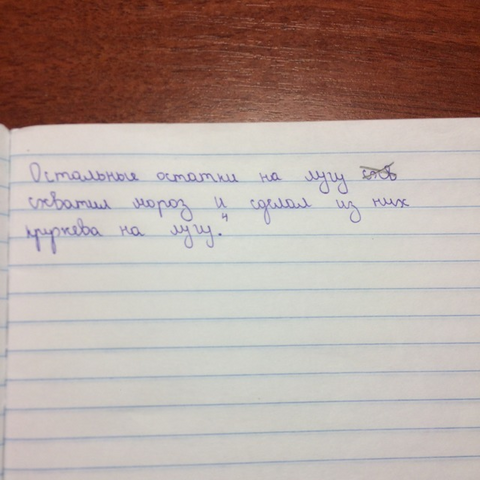 Остальные остатки на лугу
схватил мороз и сделал из них
кружева на лугу."